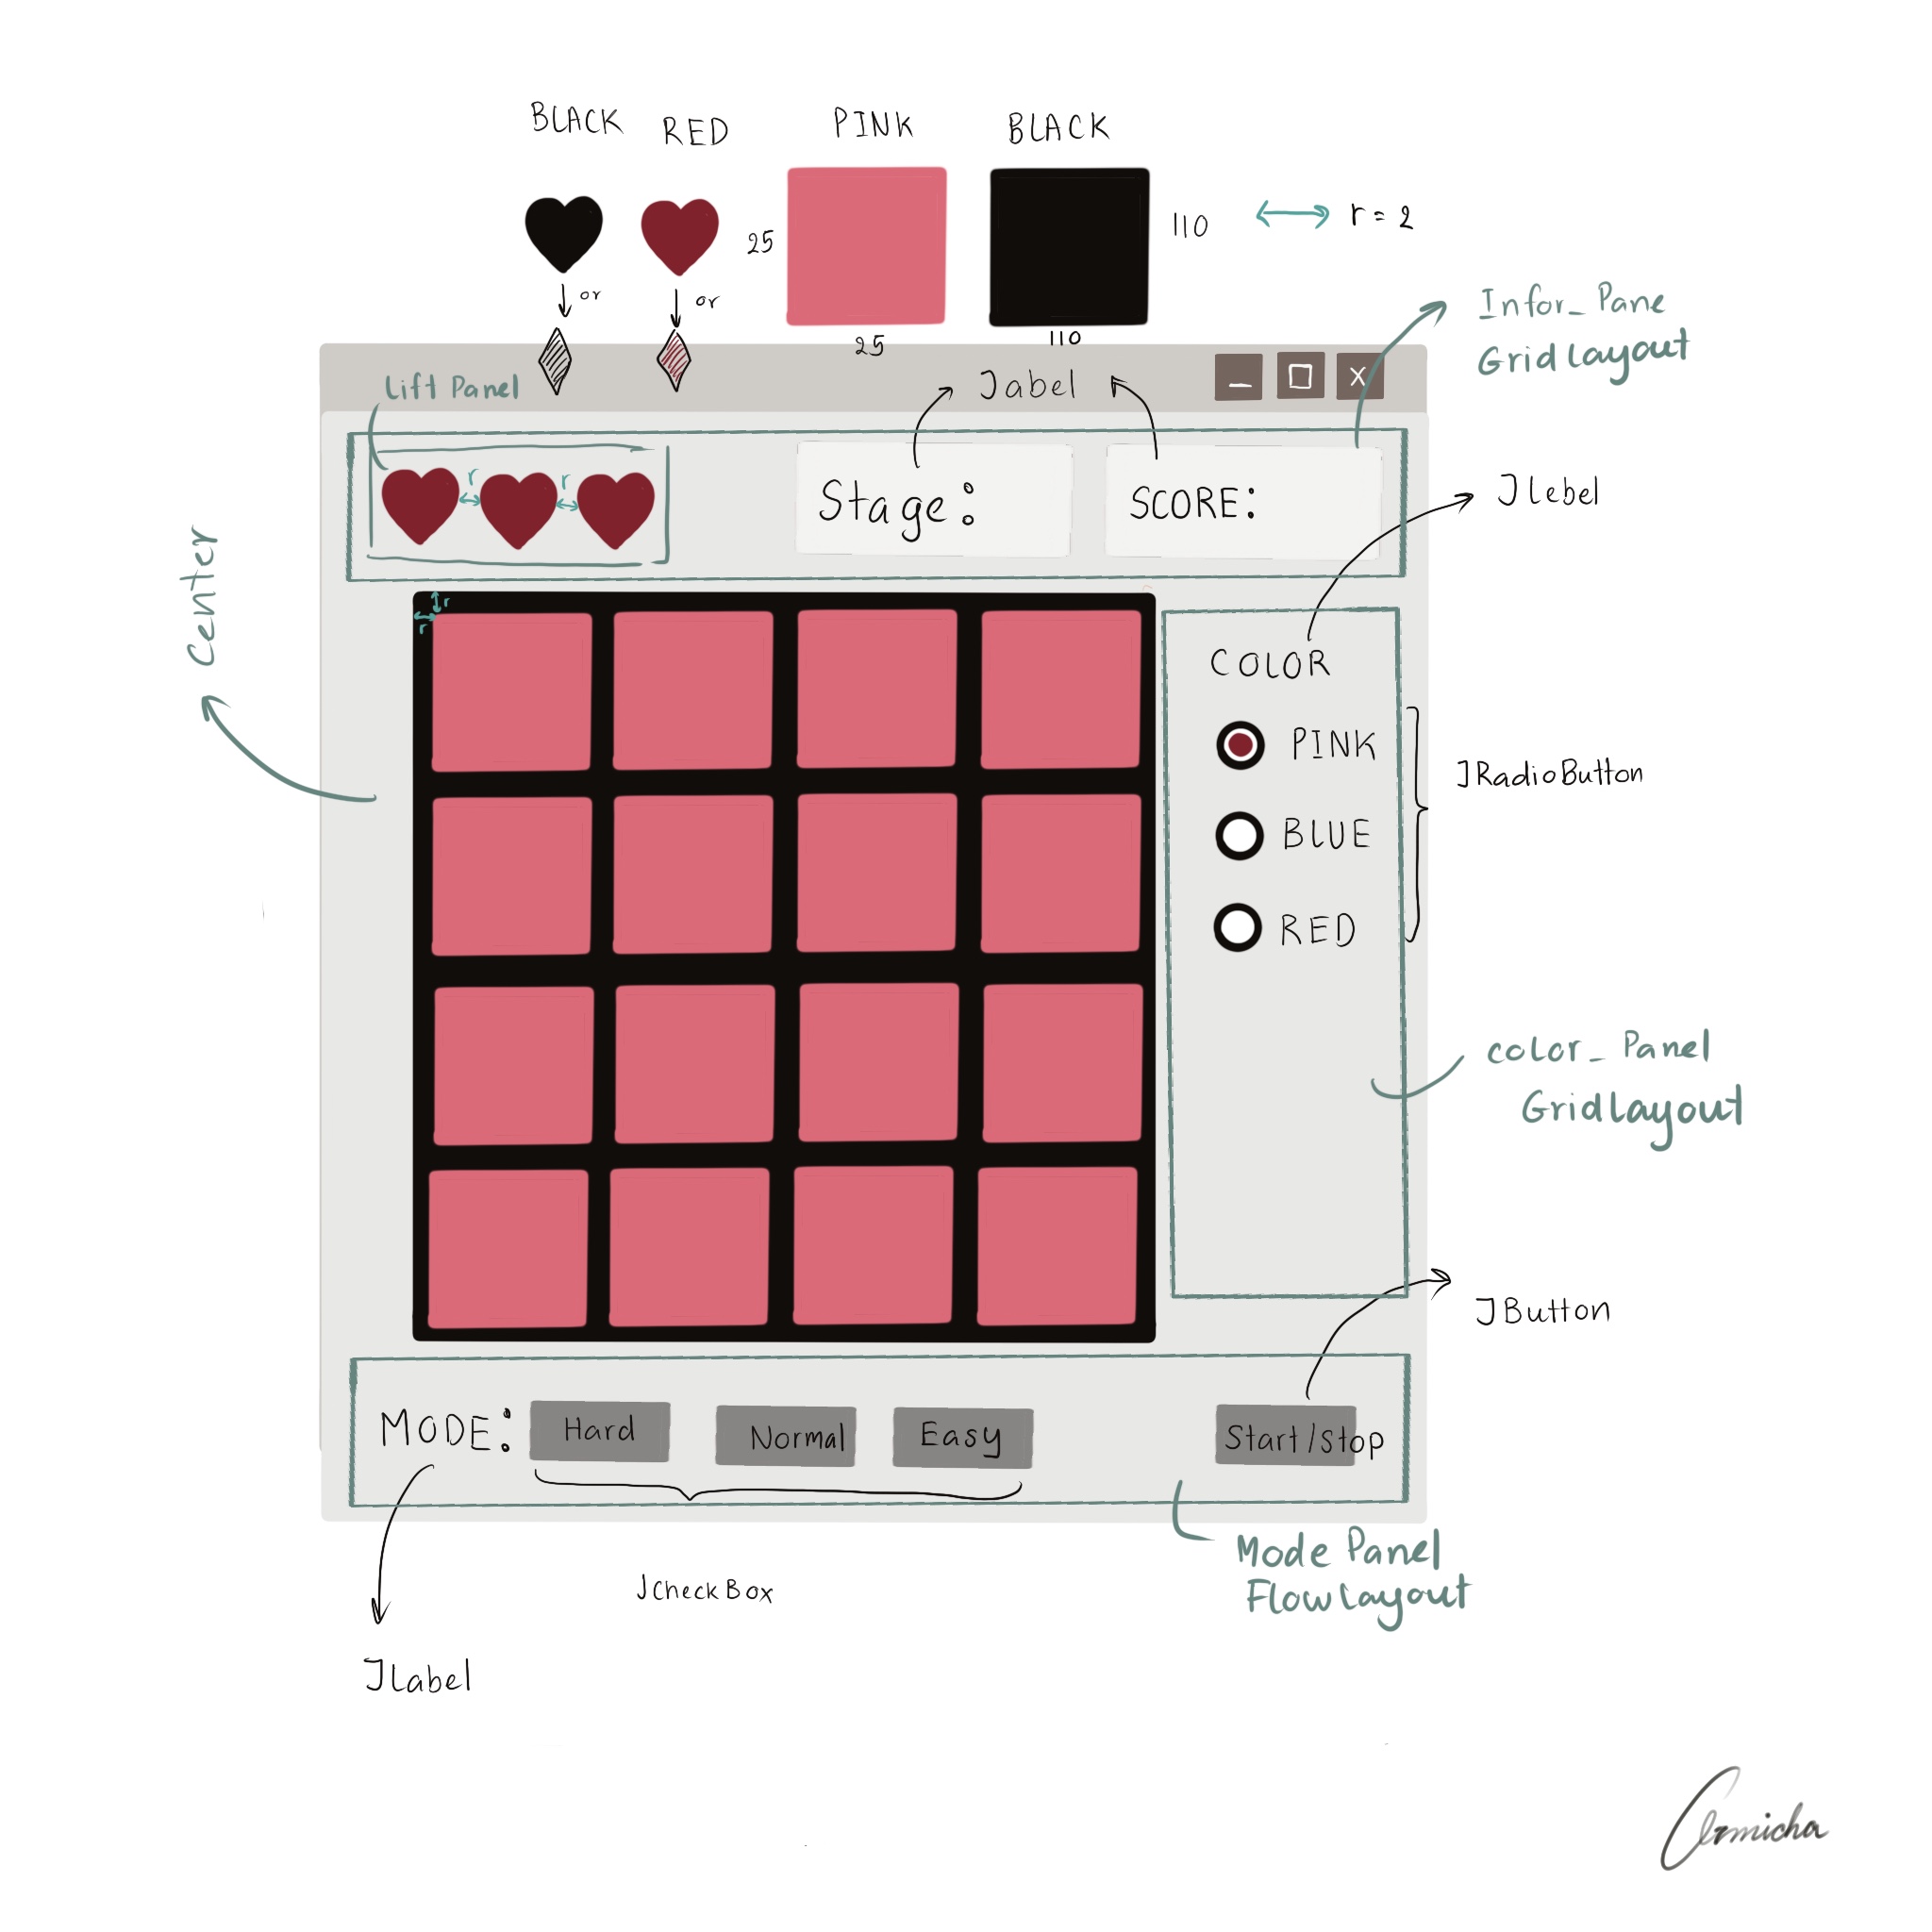 BLACK
RED
PINK
BLACK
25
110
r = 2
or
or
25
110
Infor_Pane
Gridlayout
Lift Panel
Jabel
X
r
r
Stage:
SCORE:
Jlebel
Center
r
r
COLOR
PINK
BLUE
RED
JRadioButton
color_Panel
Gridlayout
JButton
MODE:
Hard
Normal
Easy
Start/stop
Mode Panel
Flowlayout
JCheckBox
JLabel